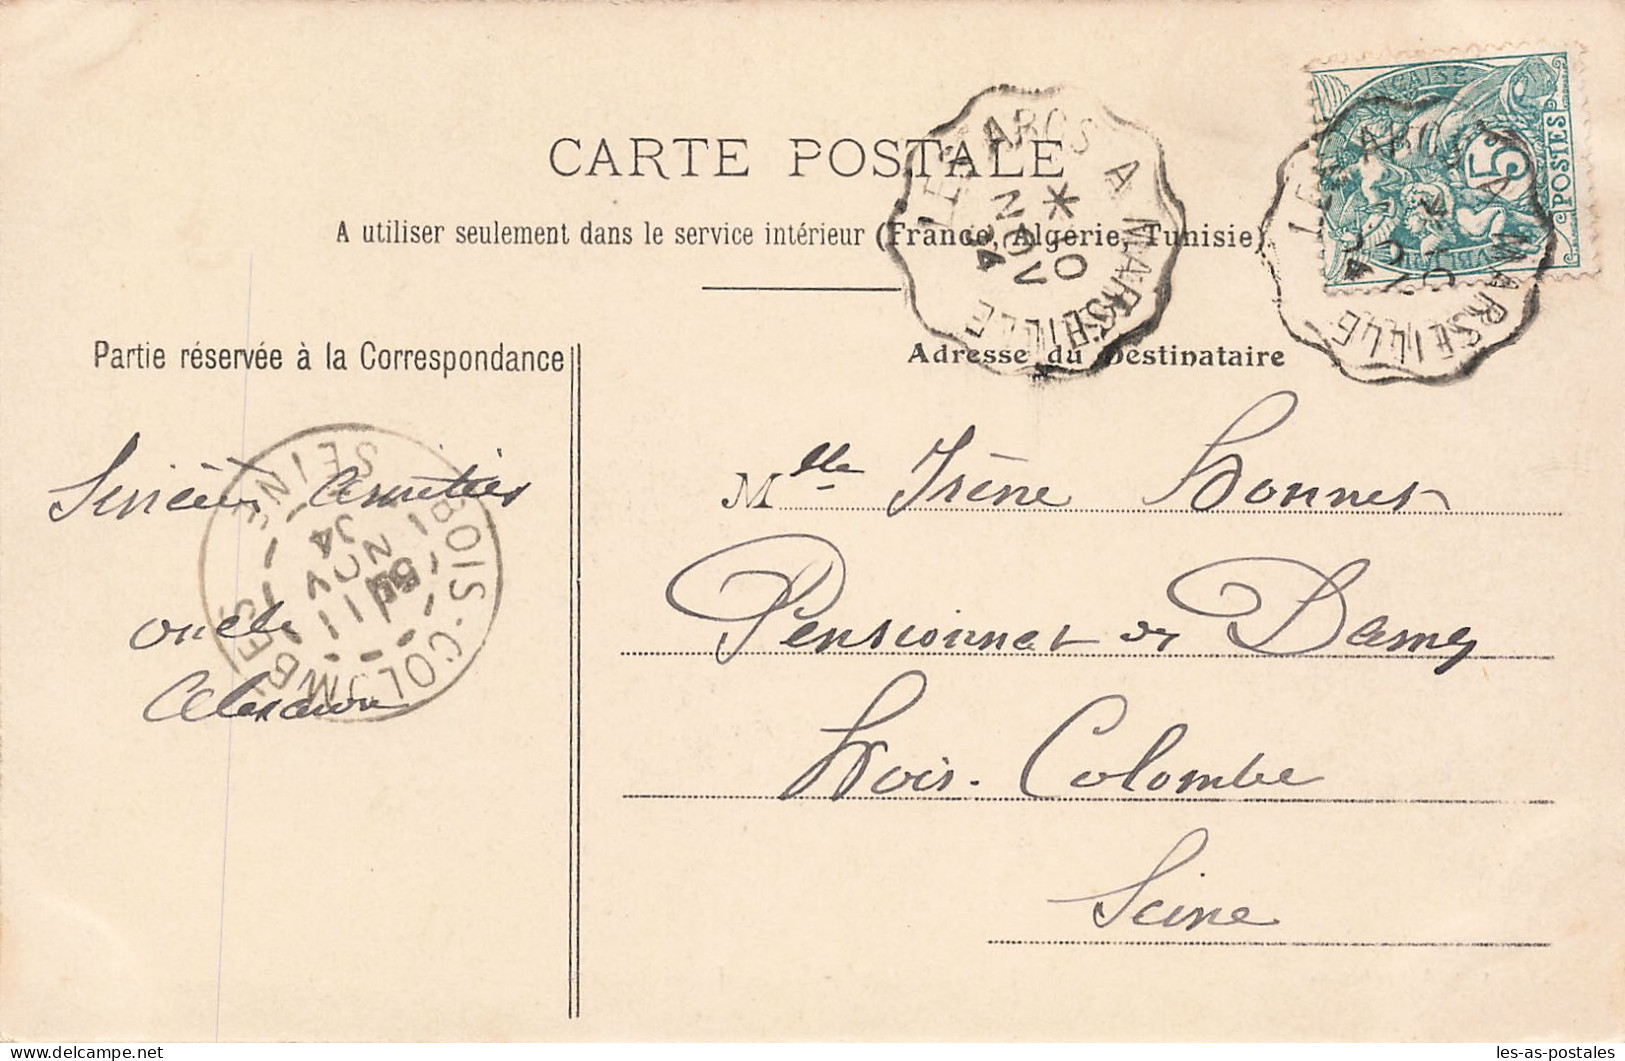 CARTE POSTALE
A utiliser seulement dans le service intérieur (France, Algérie, Tunisie)
LES ARCS A MARSEILLE
* 10 NOV 04
LES ARCS A MARSEILLE
POSTES
5
Partie réservée à la Correspondance
Adresse du Destinataire
BOIS-COLOMBES
SEINE
11 NOV 04
oncle
Mlle Irène
Pensionnat de Dames
Bois-Colombe
Seine
les-as-postales